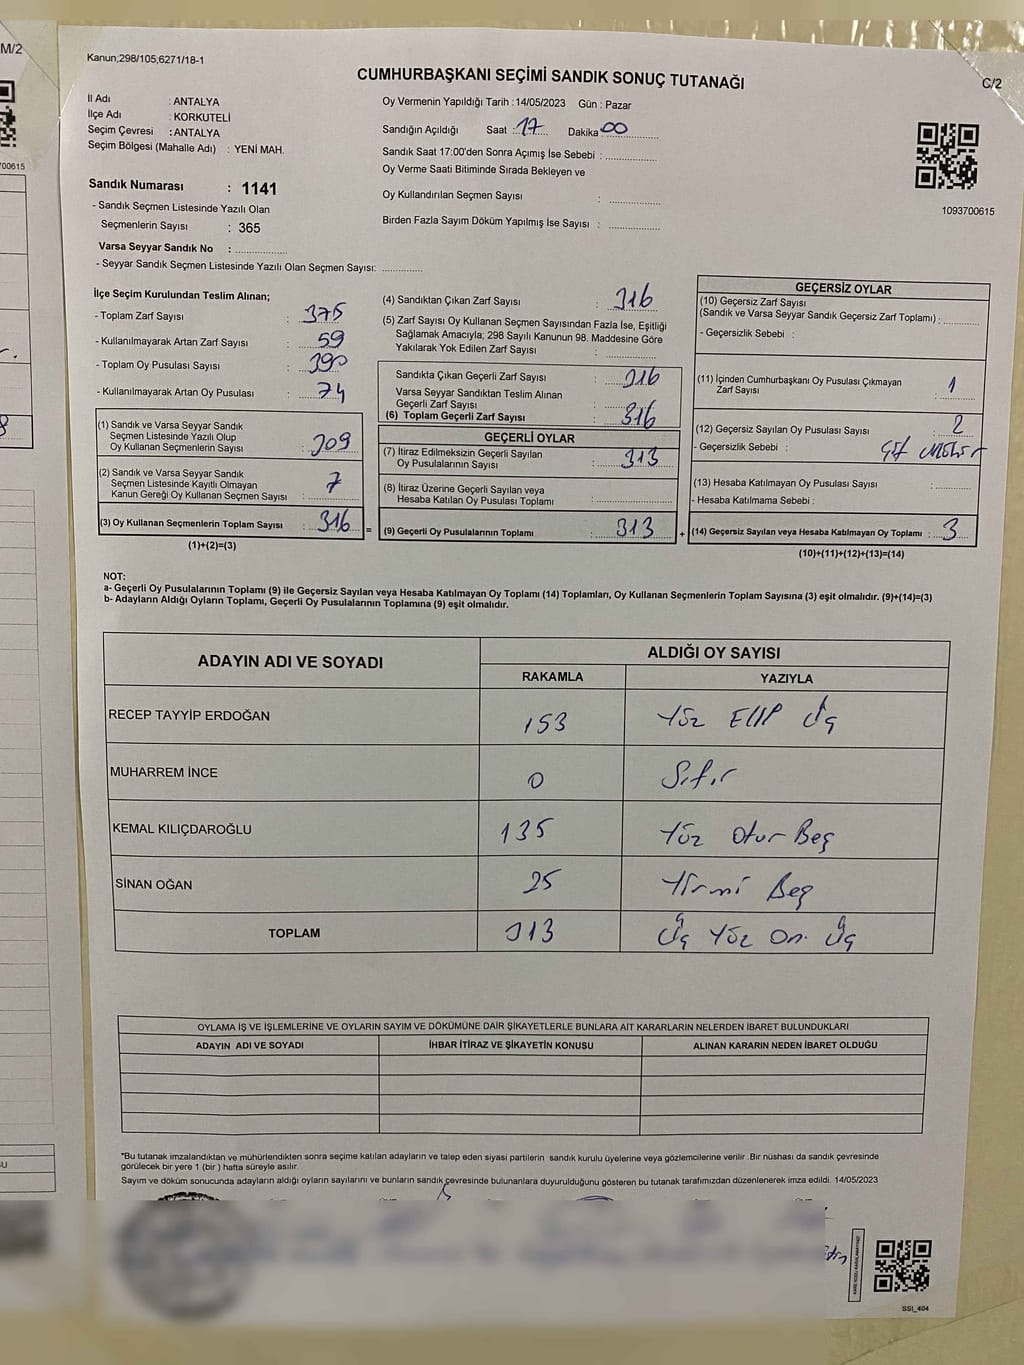 M/2
Kanun;298/105,6271/18-1
CUMHURBAŞKANI SEÇİMİ SANDIK SONUÇ TUTANAĞI
C/2
İl Adı : ANTALYA
İlçe Adı : KORKUTELİ
Seçim Çevresi : ANTALYA
Seçim Bölgesi (Mahalle Adı) : YENİ MAH.
Oy Vermenin Yapıldığı Tarih : 14/05/2023 Gün : Pazar
Sandığın Açıldığı Saat : 17 Dakika 00
Sandık Saat 17:00'den Sonra Açımış İse Sebebi :
Oy Verme Saati Bitiminde Sırada Bekleyen ve
Oy Kullandırılan Seçmen Sayısı :
Birden Fazla Sayım Döküm Yapılmış İse Sayısı :
1093700615
700615
Sandık Numarası : 1141
- Sandık Seçmen Listesinde Yazılı Olan
Seçmenlerin Sayısı : 365
Varsa Seyyar Sandık No :
- Seyyar Sandık Seçmen Listesinde Yazılı Olan Seçmen Sayısı:
İlçe Seçim Kurulundan Teslim Alınan;
- Toplam Zarf Sayısı : 375
- Kullanılmayarak Artan Zarf Sayısı : 59
- Toplam Oy Pusulası Sayısı : 390
- Kullanılmayarak Artan Oy Pusulası : 74
(1) Sandık ve Varsa Seyyar Sandık
Seçmen Listesinde Yazılı Olup
Oy Kullanan Seçmenlerin Sayısı : 309
(2) Sandık ve Varsa Seyyar Sandık
Seçmen Listesinde Kayıtlı Olmayan
Kanun Gereği Oy Kullanan Seçmen Sayısı : 7
(3) Oy Kullanan Seçmenlerin Toplam Sayısı : 316
(1)+(2)=(3)
(4) Sandıktan Çıkan Zarf Sayısı : 316
(5) Zarf Sayısı Oy Kullanan Seçmen Sayısından Fazla İse, Eşitliği
Sağlamak Amacıyla; 298 Sayılı Kanunun 98. Maddesine Göre
Yakılarak Yok Edilen Zarf Sayısı :
Sandıkta Çıkan Geçerli Zarf Sayısı : 316
Varsa Seyyar Sandıktan Teslim Alınan
Geçerli Zarf Sayısı :
(6) Toplam Geçerli Zarf Sayısı : 316
GEÇERLİ OYLAR
(7) İtiraz Edilmeksizin Geçerli Sayılan
Oy Pusulalarının Sayısı : 313
(8) İtiraz Üzerine Geçerli Sayılan veya
Hesaba Katılan Oy Pusulası Toplamı :
= (9) Geçerli Oy Pusulalarının Toplamı : 313 +
GEÇERSİZ OYLAR
(10) Geçersiz Zarf Sayısı
(Sandık ve Varsa Seyyar Sandık Geçersiz Zarf Toplamı) :
- Geçersizlik Sebebi :
(11) İçinden Cumhurbaşkanı Oy Pusulası Çıkmayan
Zarf Sayısı : 1
(12) Geçersiz Sayılan Oy Pusulası Sayısı : 2
- Geçersizlik Sebebi :
(13) Hesaba Katılmayan Oy Pusulası Sayısı :
- Hesaba Katılmama Sebebi :
(14) Geçersiz Sayılan veya Hesaba Katılmayan Oy Toplamı : 3
(10)+(11)+(12)+(13)=(14)
NOT:
a- Geçerli Oy Pusulalarının Toplamı (9) ile Geçersiz Sayılan veya Hesaba Katılmayan Oy Toplamı (14) Toplamları, Oy Kullanan Seçmenlerin Toplam Sayısına (3) eşit olmalıdır. (9)+(14)=(3)
b- Adayların Aldığı Oyların Toplamı, Geçerli Oy Pusulalarının Toplamına (9) eşit olmalıdır.
ADAYIN ADI VE SOYADI
ALDIĞI OY SAYISI
RAKAMLA YAZIYLA
RECEP TAYYİP ERDOĞAN 153 Yüz Elli Üç
MUHARREM İNCE 0 Sıfır
KEMAL KILIÇDAROĞLU 135 Yüz Otuz Beş
SİNAN OĞAN 25 Yirmi Beş
TOPLAM 313 Üç Yüz On Üç
OYLAMA İŞ VE İŞLEMLERİNE VE OYLARIN SAYIM VE DÖKÜMÜNE DAİR ŞİKAYETLERLE BUNLARA AİT KARARLARIN NELERDEN İBARET BULUNDUKLARI
ADAYIN ADI VE SOYADI İHBAR İTİRAZ VE ŞİKAYETİN KONUSU ALINAN KARARIN NEDEN İBARET OLDUĞU
*Bu tutanak imzalandıktan ve mühürlendikten sonra seçime katılan adayların ve talep eden siyasi partilerin sandık kurulu üyelerine veya gözlemcilerine verilir .Bir nüshası da sandık çevresinde
görülecek bir yere 1 (bir ) hafta süreyle asılır.
Sayım ve döküm sonucunda adayların aldığı oyların sayılarını ve bunların sandık çevresinde bulunanlara duyurulduğunu gösteren bu tutanak tarafımızdan düzenlenerek imza edildi. 14/05/2023
SSI_404